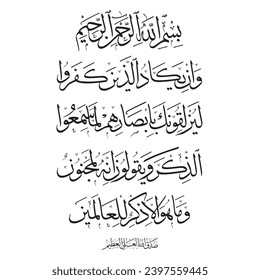 بِسْمِ اللَّهِ الرَّحْمَٰنِ الرَّحِيمِ
وَإِن يَكَادُ الَّذِينَ كَفَرُوا
لَيُزْلِقُونَكَ بِأَبْصَارِهِمْ لَمَّا سَمِعُوا
الذِّكْرَ وَيَقُولُونَ إِنَّهُ لَمَجْنُونٌ
وَمَا هُوَ إِلَّا ذِكْرٌ لِلْعَالَمِينَ
صدق الله العلي العظيم
shutterstock.com · 2397559445